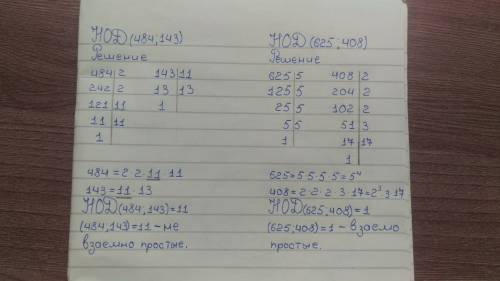 НОД(484;143)
Решение
484|2 143|11
242|2 13|13
121|11 1
11|11
1
484=2·2·11·11
143=11·13
НОД(484,143)=11
(484,143)=11-не
взаемно простые.
НОД(625;408)
Решение
625|5 408|2
125|5 204|2
25|5 102|2
5|5 51|3
1 17|17
1
625=5·5·5·5=5⁴
408=2·2·2·3·17=2³·3·17
НОД(625,408)=1
(625;408)=1-взаемо
простые.